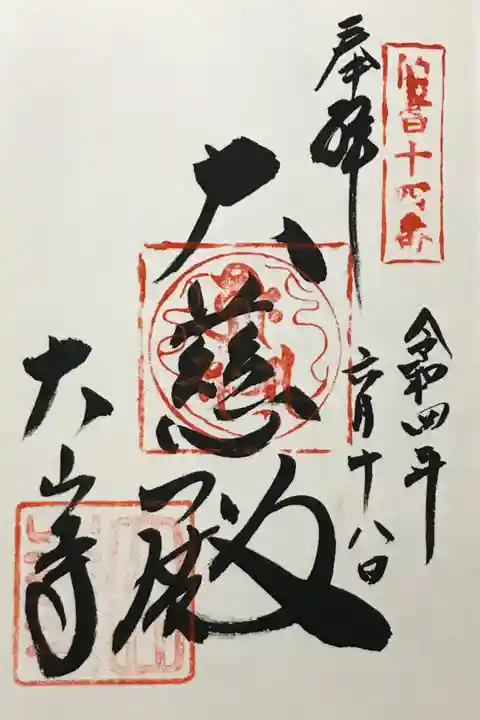 伯耆十四番
奉拝
令和四年
六月十八日
大慈殿
大山寺